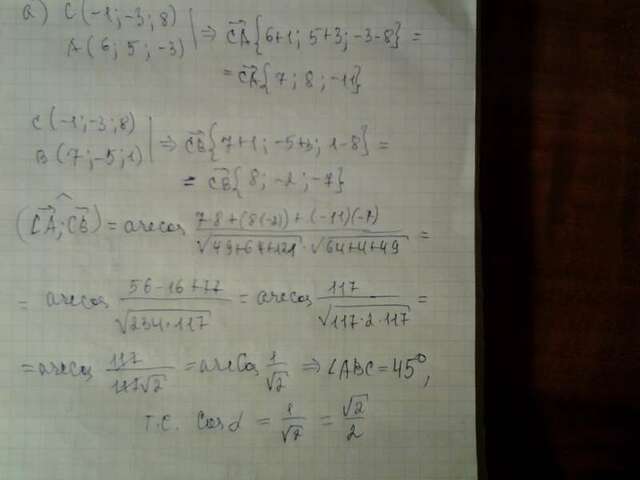 а) C(-1;-3;8)
A(6;5;-3) | ⇒ CA{6+1; 5+3; -3-8} =
= CA{7; 8; -11}
C(-1;-3;8)
B(7;-5;1) | ⇒ CB{7+1; -5+3; 1-8} =
= CB{8; -2; -7}
(CA;CB) = arccos (7·8+(8(-2))+(-11)(-7))/(√49+64+121 · √64+4+49) =
= arccos (56-16+77)/(√234·117) = arccos 117/(√117·2·117) =
= arccos 117/(117√2) = arccos 1/√2 ⇒ ∠ABC = 45°,
т.с. cos α = 1/√2 = √2/2